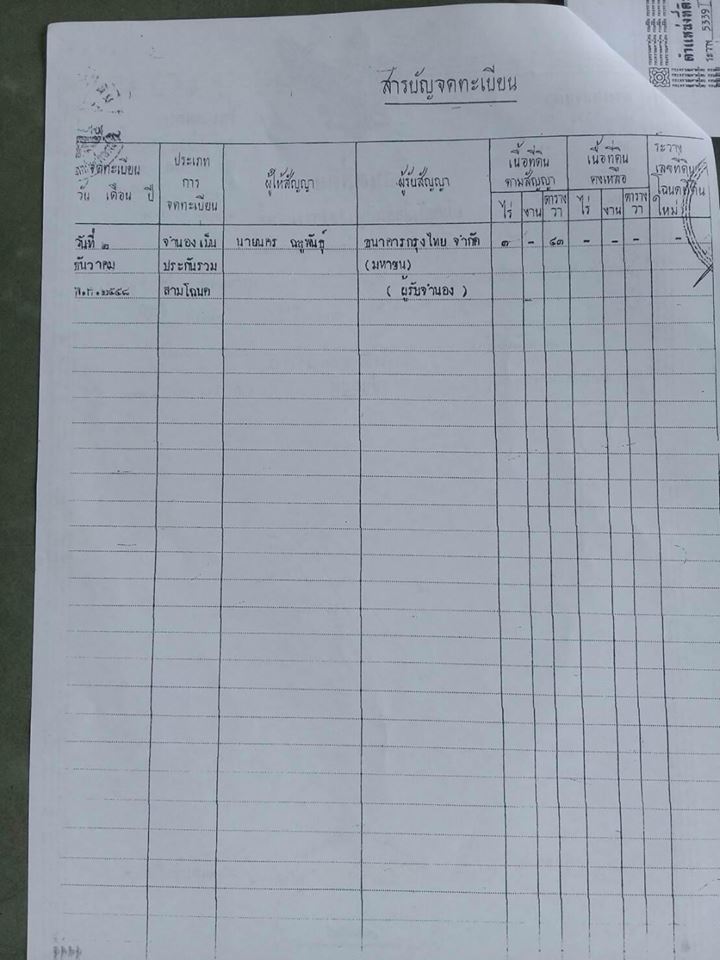 ตำแหน่งที่ดิน
ระวาง 5339
สารบัญจดทะเบียน
จดทะเบียน
วัน เดือน ปี
ประเภท
การ
จดทะเบียน
ผู้ให้สัญญา
ผู้รับสัญญา
เนื้อที่ดิน
ตามสัญญา
ไร่ งาน ตาราง
วา
เนื้อที่ดิน
คงเหลือ
ไร่ งาน ตาราง
วา
ระวาง
เลขที่ดิน
โฉนดที่ดิน
ใหม่
วันที่ ๒ จำนองเป็น นายนคร ธนาคารกรุงไทย จำกัด ๓ - ๔๓ - - - -
ธันวาคม ประกันรวม (มหาชน)
พ.ศ.๒๕๕๘ สามโฉนด ( ผู้รับจำนอง )